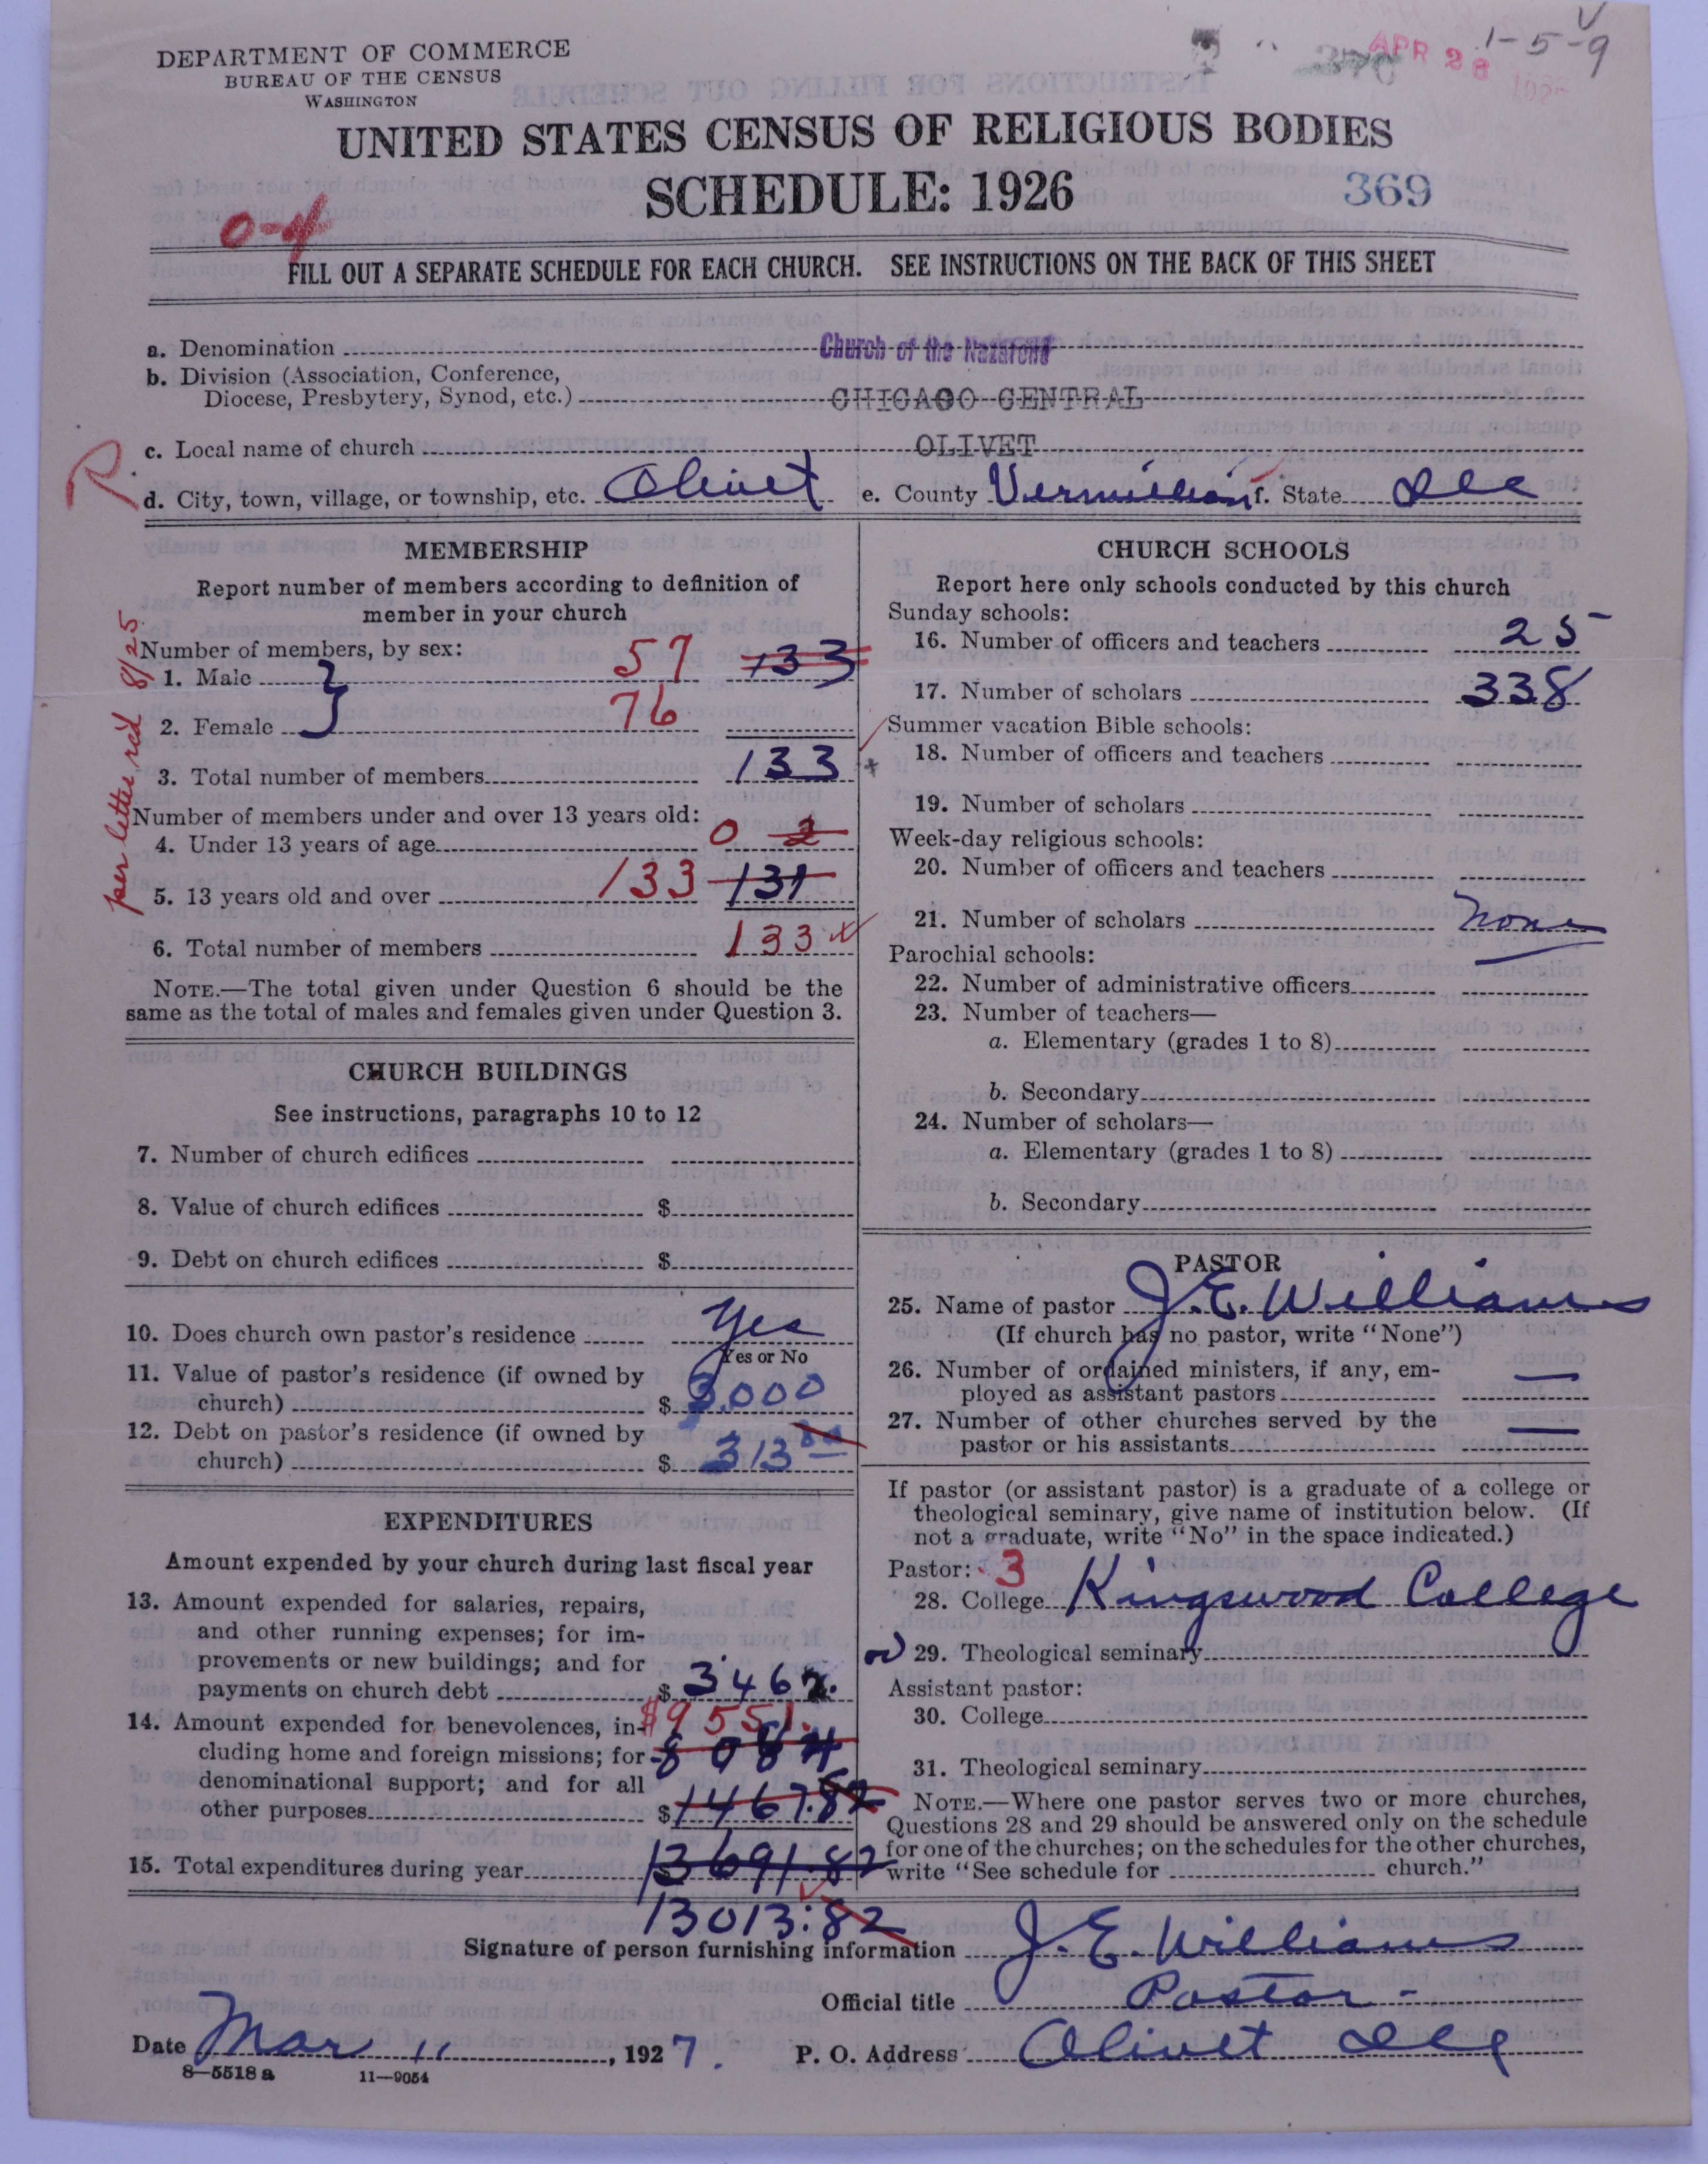 DEPARTMENT OF COMMERCE
BUREAU OF THE CENSUS
WASHINGTON
APR 28
1-5-9
UNITED STATES CENSUS OF RELIGIOUS BODIES
SCHEDULE: 1926
369
0-4
FILL OUT A SEPARATE SCHEDULE FOR EACH CHURCH. SEE INSTRUCTIONS ON THE BACK OF THIS SHEET
a. Denomination Church of the Nazarene
b. Division (Association, Conference,
Diocese, Presbytery, Synod, etc.) CHICAGO CENTRAL
c. Local name of church OLIVET
d. City, town, village, or township, etc. Olivet e. County Vermilion f. State Ill
MEMBERSHIP
Report number of members according to definition of
member in your church
Number of members, by sex:
1. Male 57 133
2. Female 76
3. Total number of members 133
Number of members under and over 13 years old:
4. Under 13 years of age 0 2
5. 13 years old and over 133 131
6. Total number of members 133
per letter red 8/25
NOTE.—The total given under Question 6 should be the
same as the total of males and females given under Question 3.
CHURCH BUILDINGS
See instructions, paragraphs 10 to 12
7. Number of church edifices
8. Value of church edifices $
9. Debt on church edifices $
10. Does church own pastor's residence Yes
Yes or No
11. Value of pastor's residence (if owned by
church) $ 3,000
12. Debt on pastor's residence (if owned by
church) $ 313
EXPENDITURES
Amount expended by your church during last fiscal year
13. Amount expended for salaries, repairs,
and other running expenses; for im-
provements or new buildings; and for
payments on church debt $ 3462.
14. Amount expended for benevolences, in- $9551.
cluding home and foreign missions; for 8084
denominational support; and for all
other purposes $ 1467.82
15. Total expenditures during year 13691.82
13013:82
CHURCH SCHOOLS
Report here only schools conducted by this church
Sunday schools:
16. Number of officers and teachers 25
17. Number of scholars 338
Summer vacation Bible schools:
18. Number of officers and teachers
19. Number of scholars
Week-day religious schools:
20. Number of officers and teachers
21. Number of scholars none
Parochial schools:
22. Number of administrative officers
23. Number of teachers—
a. Elementary (grades 1 to 8)
b. Secondary
24. Number of scholars—
a. Elementary (grades 1 to 8)
b. Secondary
PASTOR
25. Name of pastor J. E. Williams
(If church has no pastor, write "None")
26. Number of ordained ministers, if any, em-
ployed as assistant pastors —
27. Number of other churches served by the
pastor or his assistants —
If pastor (or assistant pastor) is a graduate of a college or
theological seminary, give name of institution below. (If
not a graduate, write "No" in the space indicated.)
Pastor: 3
28. College Kingswood College
29. Theological seminary
Assistant pastor:
30. College
31. Theological seminary
NOTE.—Where one pastor serves two or more churches,
Questions 28 and 29 should be answered only on the schedule
for one of the churches; on the schedules for the other churches,
write "See schedule for church."
Signature of person furnishing information J. E. Williams
Official title Pastor
Date Mar 11, 1927. P. O. Address Olivet Ill
8—5518 a 11—9054